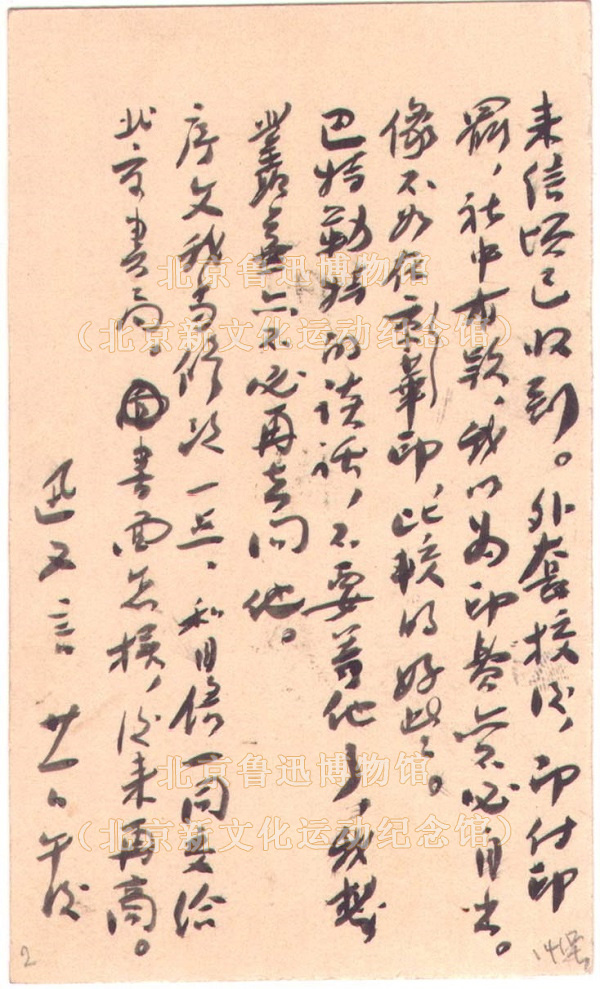 来信顷已收到。外套校后,即付印
罢,社中有款,我以为印费亦不必自出。
像不如在京华印,比较的好些。
巴特勒特的谈话,不要等他了,我想
丛芜亦不必再去问他。
序文我当修改一点,和目录一同交给
北京书局。书面怎样,后来再商。
迅 又言 廿一日午后
北京鲁迅博物馆
(北京新文化运动纪念馆)
北京鲁迅博物馆
(北京新文化运动纪念馆)
2